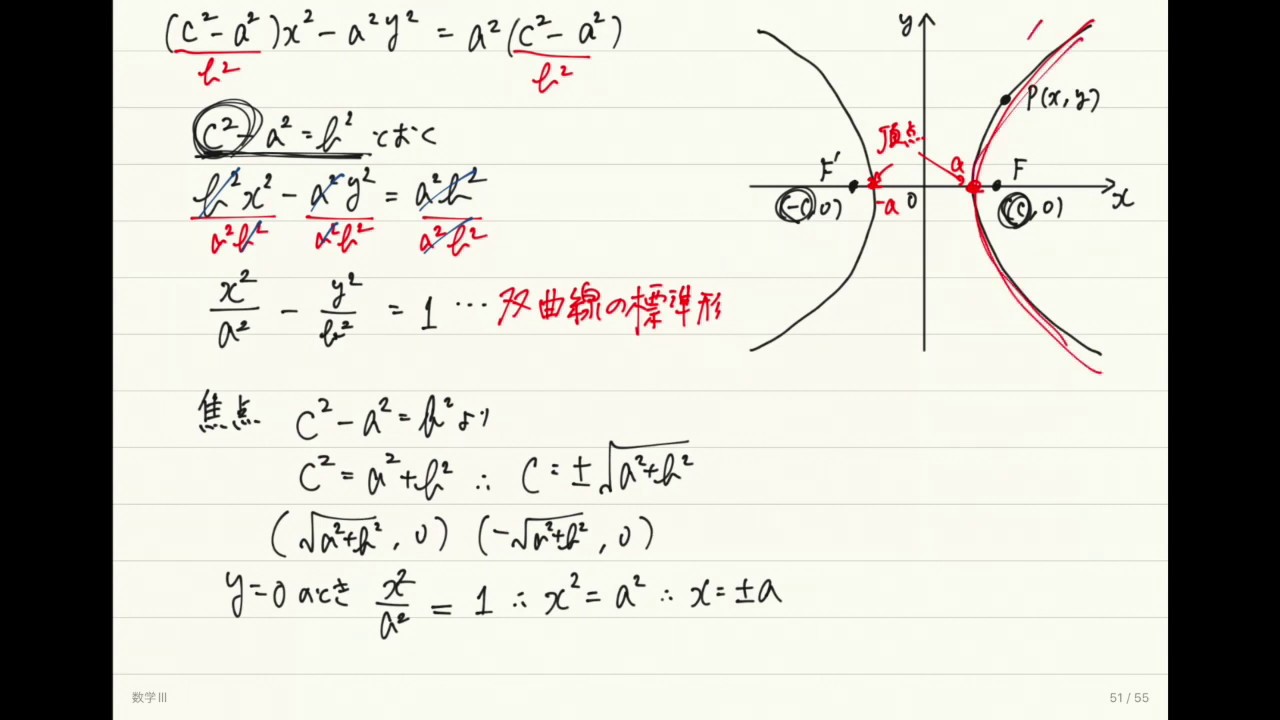 (c²-a²)x² - a²y² = a²(c²-a²)
b² b²
c²-a²=b² とおく
b²x² - a²y² = a²b²
a²b² a²b² a²b²
x²/a² - y²/b² = 1 … 双曲線の標準形
焦点 c²-a²=b² より
c²=a²+b² ∴ c=±√(a²+b²)
(√(a²+b²), 0) (-√(a²+b²), 0)
y=0 のとき x²/a² = 1 ∴ x²=a² ∴ x=±a
y
P(x, y)
頂点
F' a F
(-c, 0) -a 0 (c, 0) x
数学Ⅲ
51 / 55